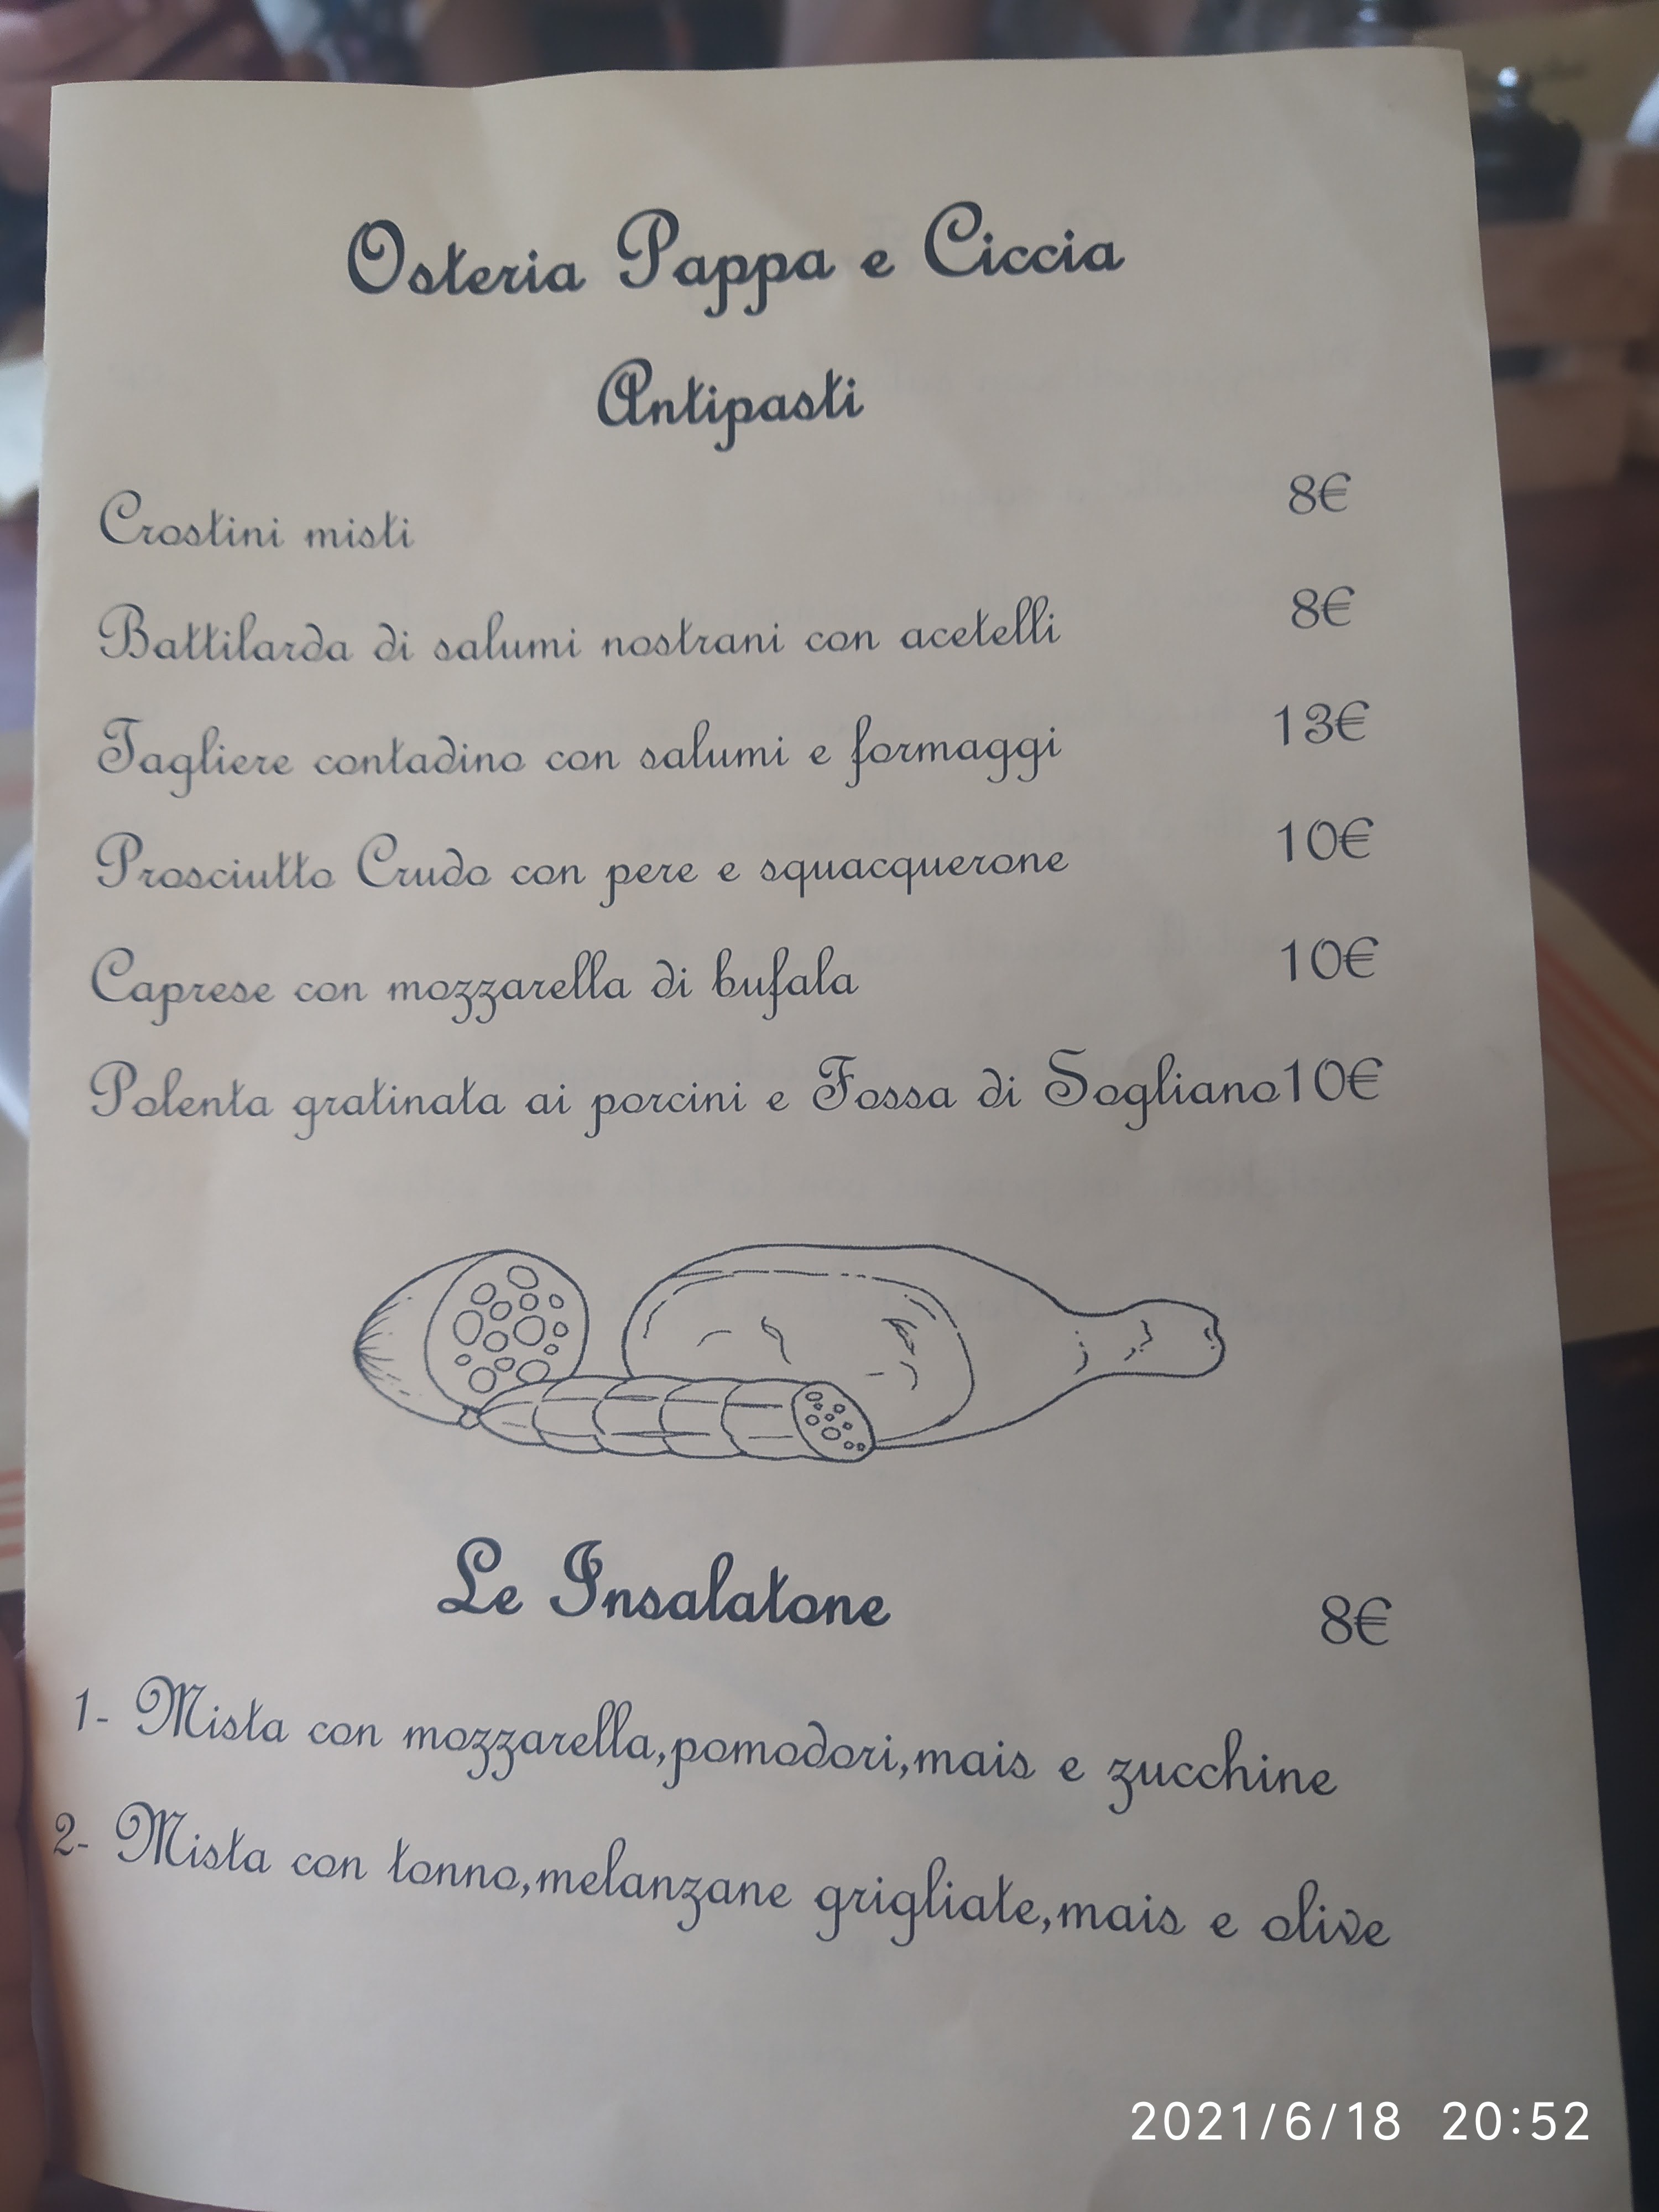 Osteria Pappa e Ciccia
Antipasti
Crostini misti 8€
Battilarda di salumi nostrani con acetelli 8€
Tagliere contadino con salumi e formaggi 13€
Prosciutto Crudo con pere e squacquerone 10€
Caprese con mozzarella di bufala 10€
Polenta gratinata ai porcini e Fossa di Sogliano10€
Le Insalatone 8€
1- Mista con mozzarella,pomodori,mais e zucchine
2- Mista con tonno,melanzane grigliate,mais e olive
2021/6/18 20:52